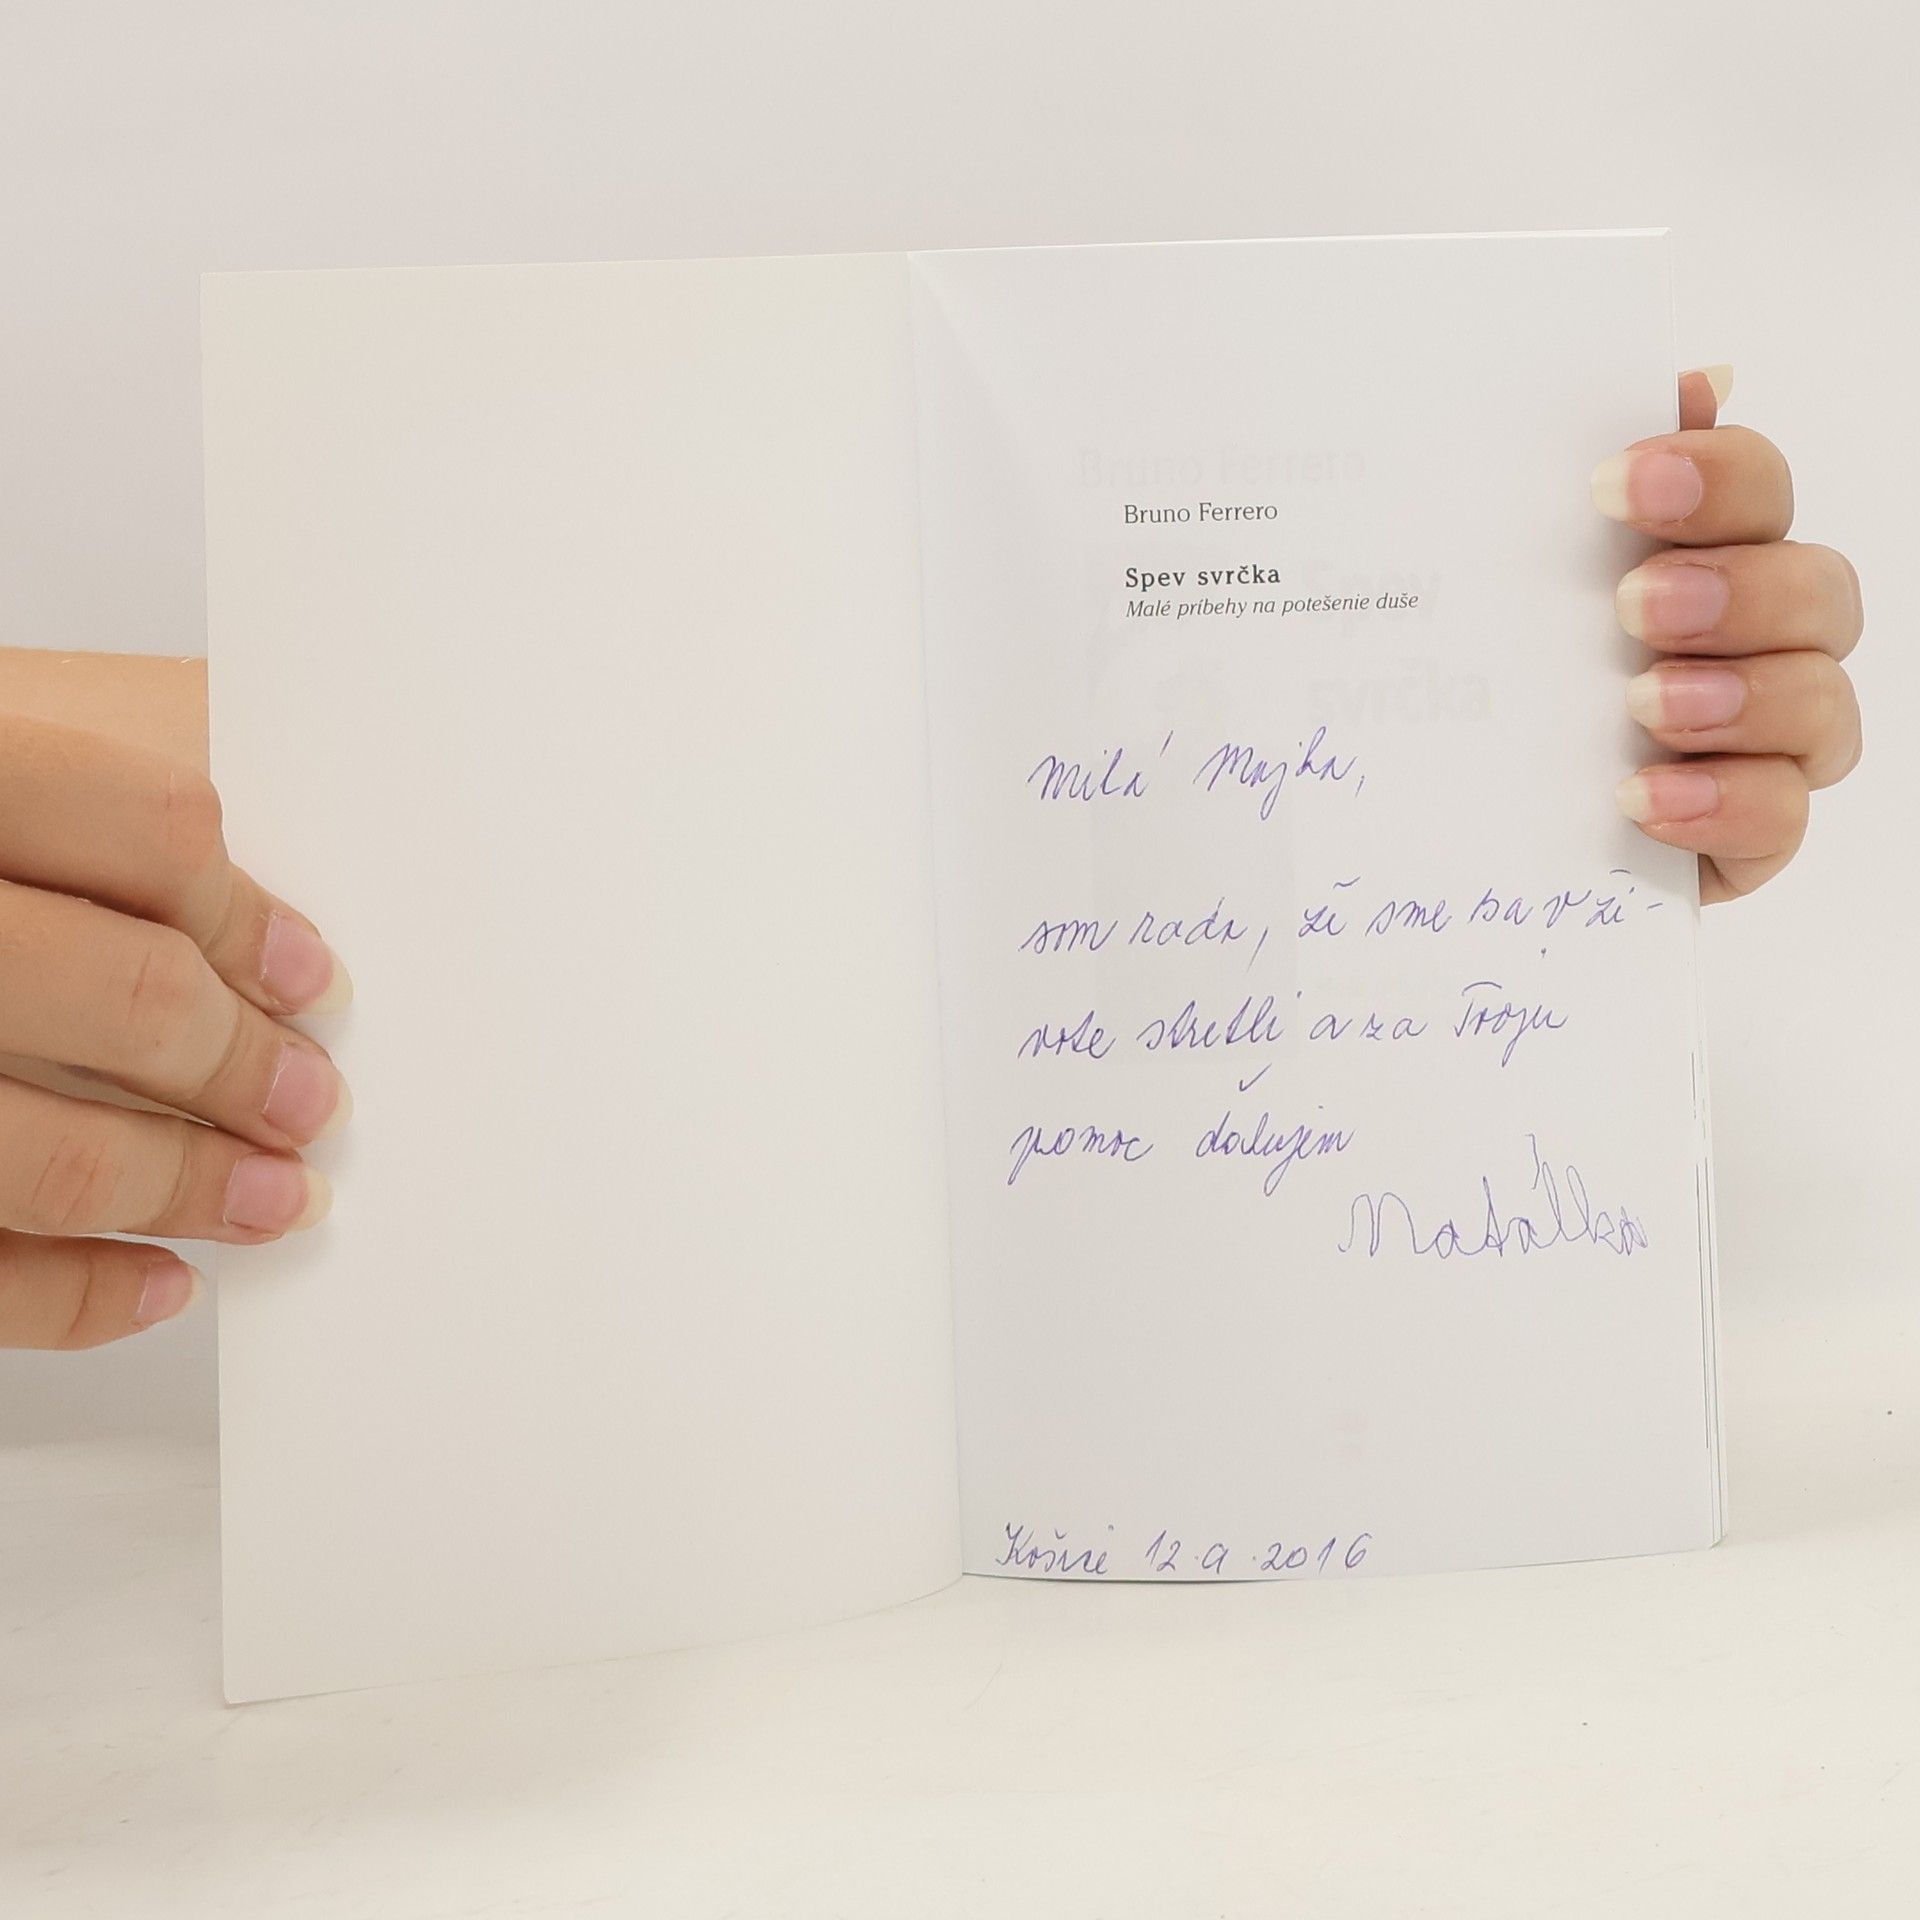 Bruno Ferrero
Spev svrčka
Malé príbehy na potešenie duše
Milá Majka,
som rada, že sme sa v ži-
vote stretli a za Tvoju
pomoc ďakujem
Natálka
Košice 12.9.2016